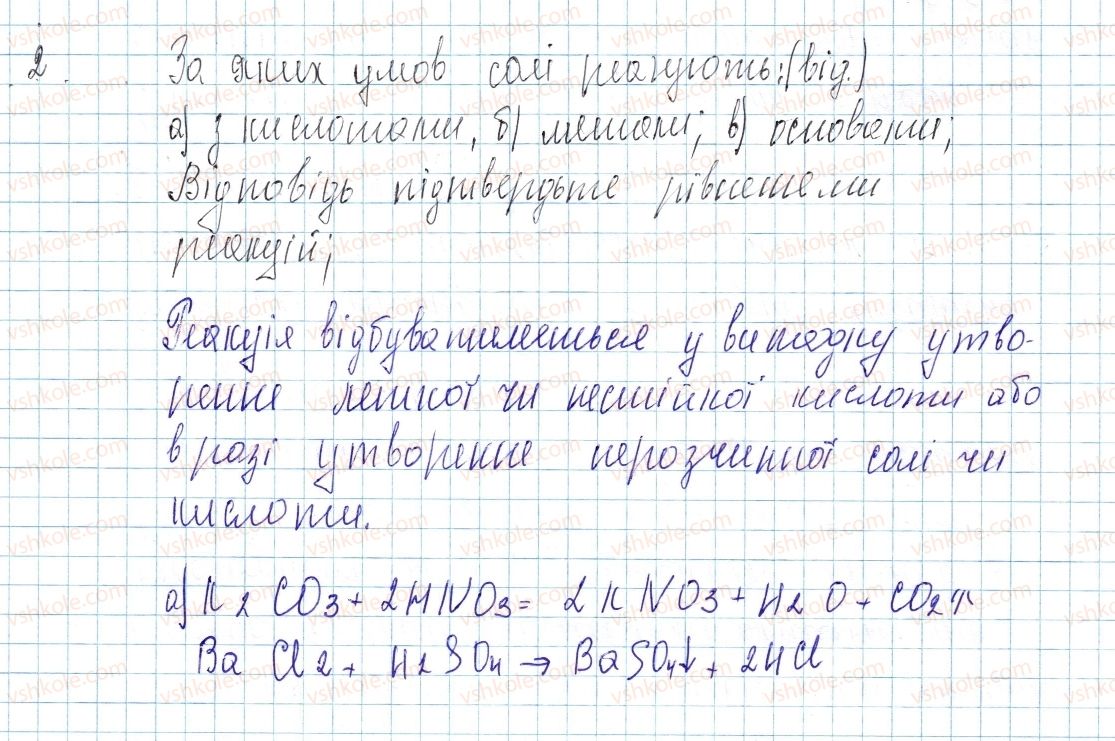 2. За яких умов солі реагують: (від.)
а) з кислотами, б) метали; в) основами;
Відповідь підтвердьте рівненями
реакцій;
Реакція відбуватиметься у випадку утво-
рення леткої чи нестійкої кислоти або
в разі утворення нерозчинної солі чи
кислоти.
а) K2CO3 + 2HNO3 = 2KNO3 + H2O + CO2↑
BaCl2 + H2SO4 → BaSO4↓ + 2HCl